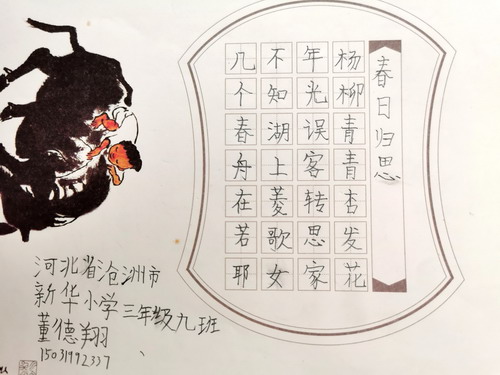 春日归思
杨柳青青杏发花
年光误客转思家
不知湖上菱歌女
几个春舟在若耶
河北省沧洲市
新华小学三年级九班
董德翔
15031992337